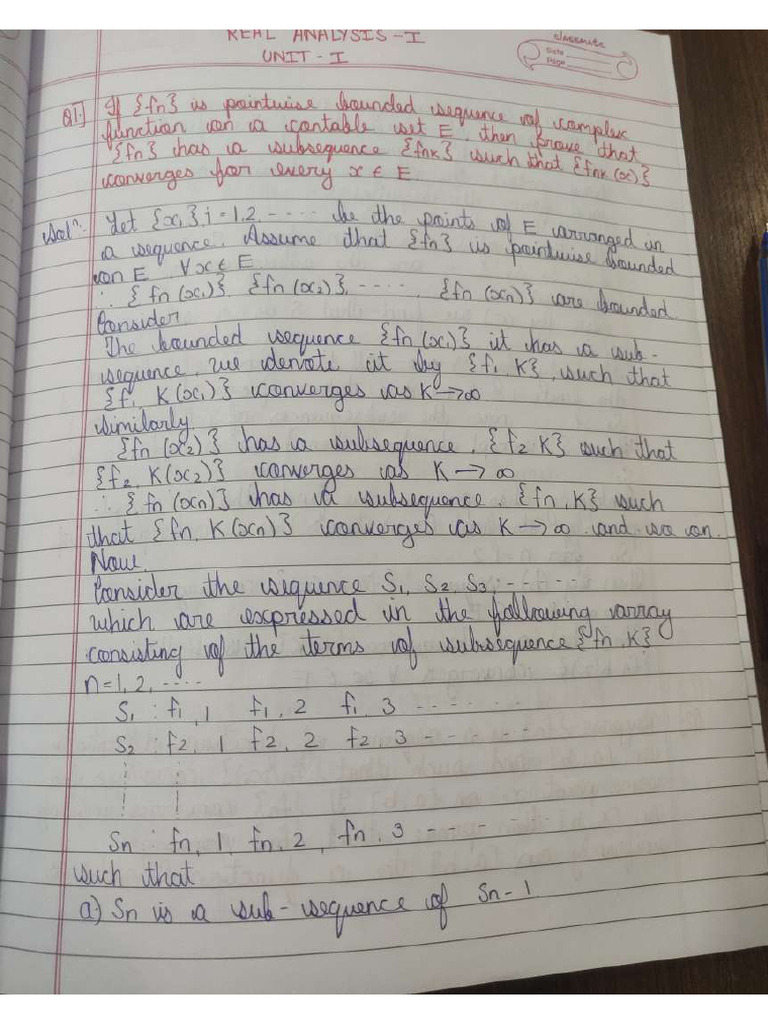 REAL ANALYSIS - I
UNIT - I
classmate
Date
Page
Q1.] If {fn} is pointwise bounded sequence of complex
function on a contable set E, then prove that
{fn} has a subsequence {fnk} such that {fnk (x)}
converges for every x ∈ E.
Solⁿ: Let {xi} i = 1, 2, ----- be the points of E arranged in
a sequence. Assume that {fn} is pointwise bounded
on E ∀ x ∈ E
∴ {fn (x1)}, {fn (x2)}, ----- {fn (xn)} are bounded.
Consider
The bounded sequence {fn (x1)} it has a sub-
sequence, we denote it by {f1, K}, such that
{f1, K(x1)} converges as K → ∞
similarly,
{fn (x2)} has a subsequence, {f2 K} such that
{f2, K(x2)} converges as K → ∞
∴ {fn (xn)} has a subsequence, {fn, K} such
that {fn, K(xn)} converges as K → ∞ and so on.
Now,
Consider the sequence S1, S2, S3, -----
which are expressed in the following array
consisting of the terms of subsequence {fn, K}
n = 1, 2, -----
S1 : f1, 1 f1, 2 f1, 3 -------
S2 : f2, 1 f2, 2 f2, 3 -------
Sn : fn, 1 fn, 2, fn, 3 -------
such that
a) Sn is a sub-sequence of Sn-1